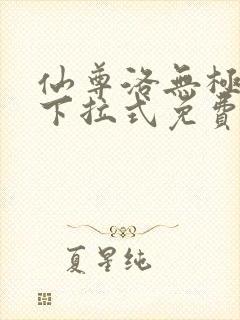 仙尊洛無極
下拉式免費
夏星純